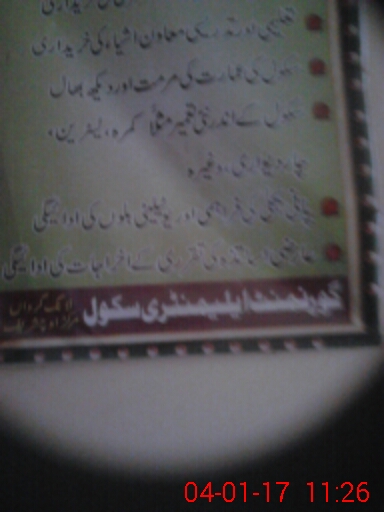 کی خریداری
تعلیمی اور تدریسی معاون اشیاء کی خریداری
سکول کی عمارت کی مرمت اور دیکھ بھال
سکول کے اندر نئی تعمیر مثلاً کمرہ، لیٹرین،
چار دیواری، وغیرہ
پانی، بجلی کی فراہمی اور یوٹیلیٹی بلوں کی ادائیگی
عارضی اساتذہ کی تقرری کے اخراجات کی ادائیگی
گورنمنٹ ایلیمنٹری سکول
مرکز اوچشریف
04-01-17 11:26